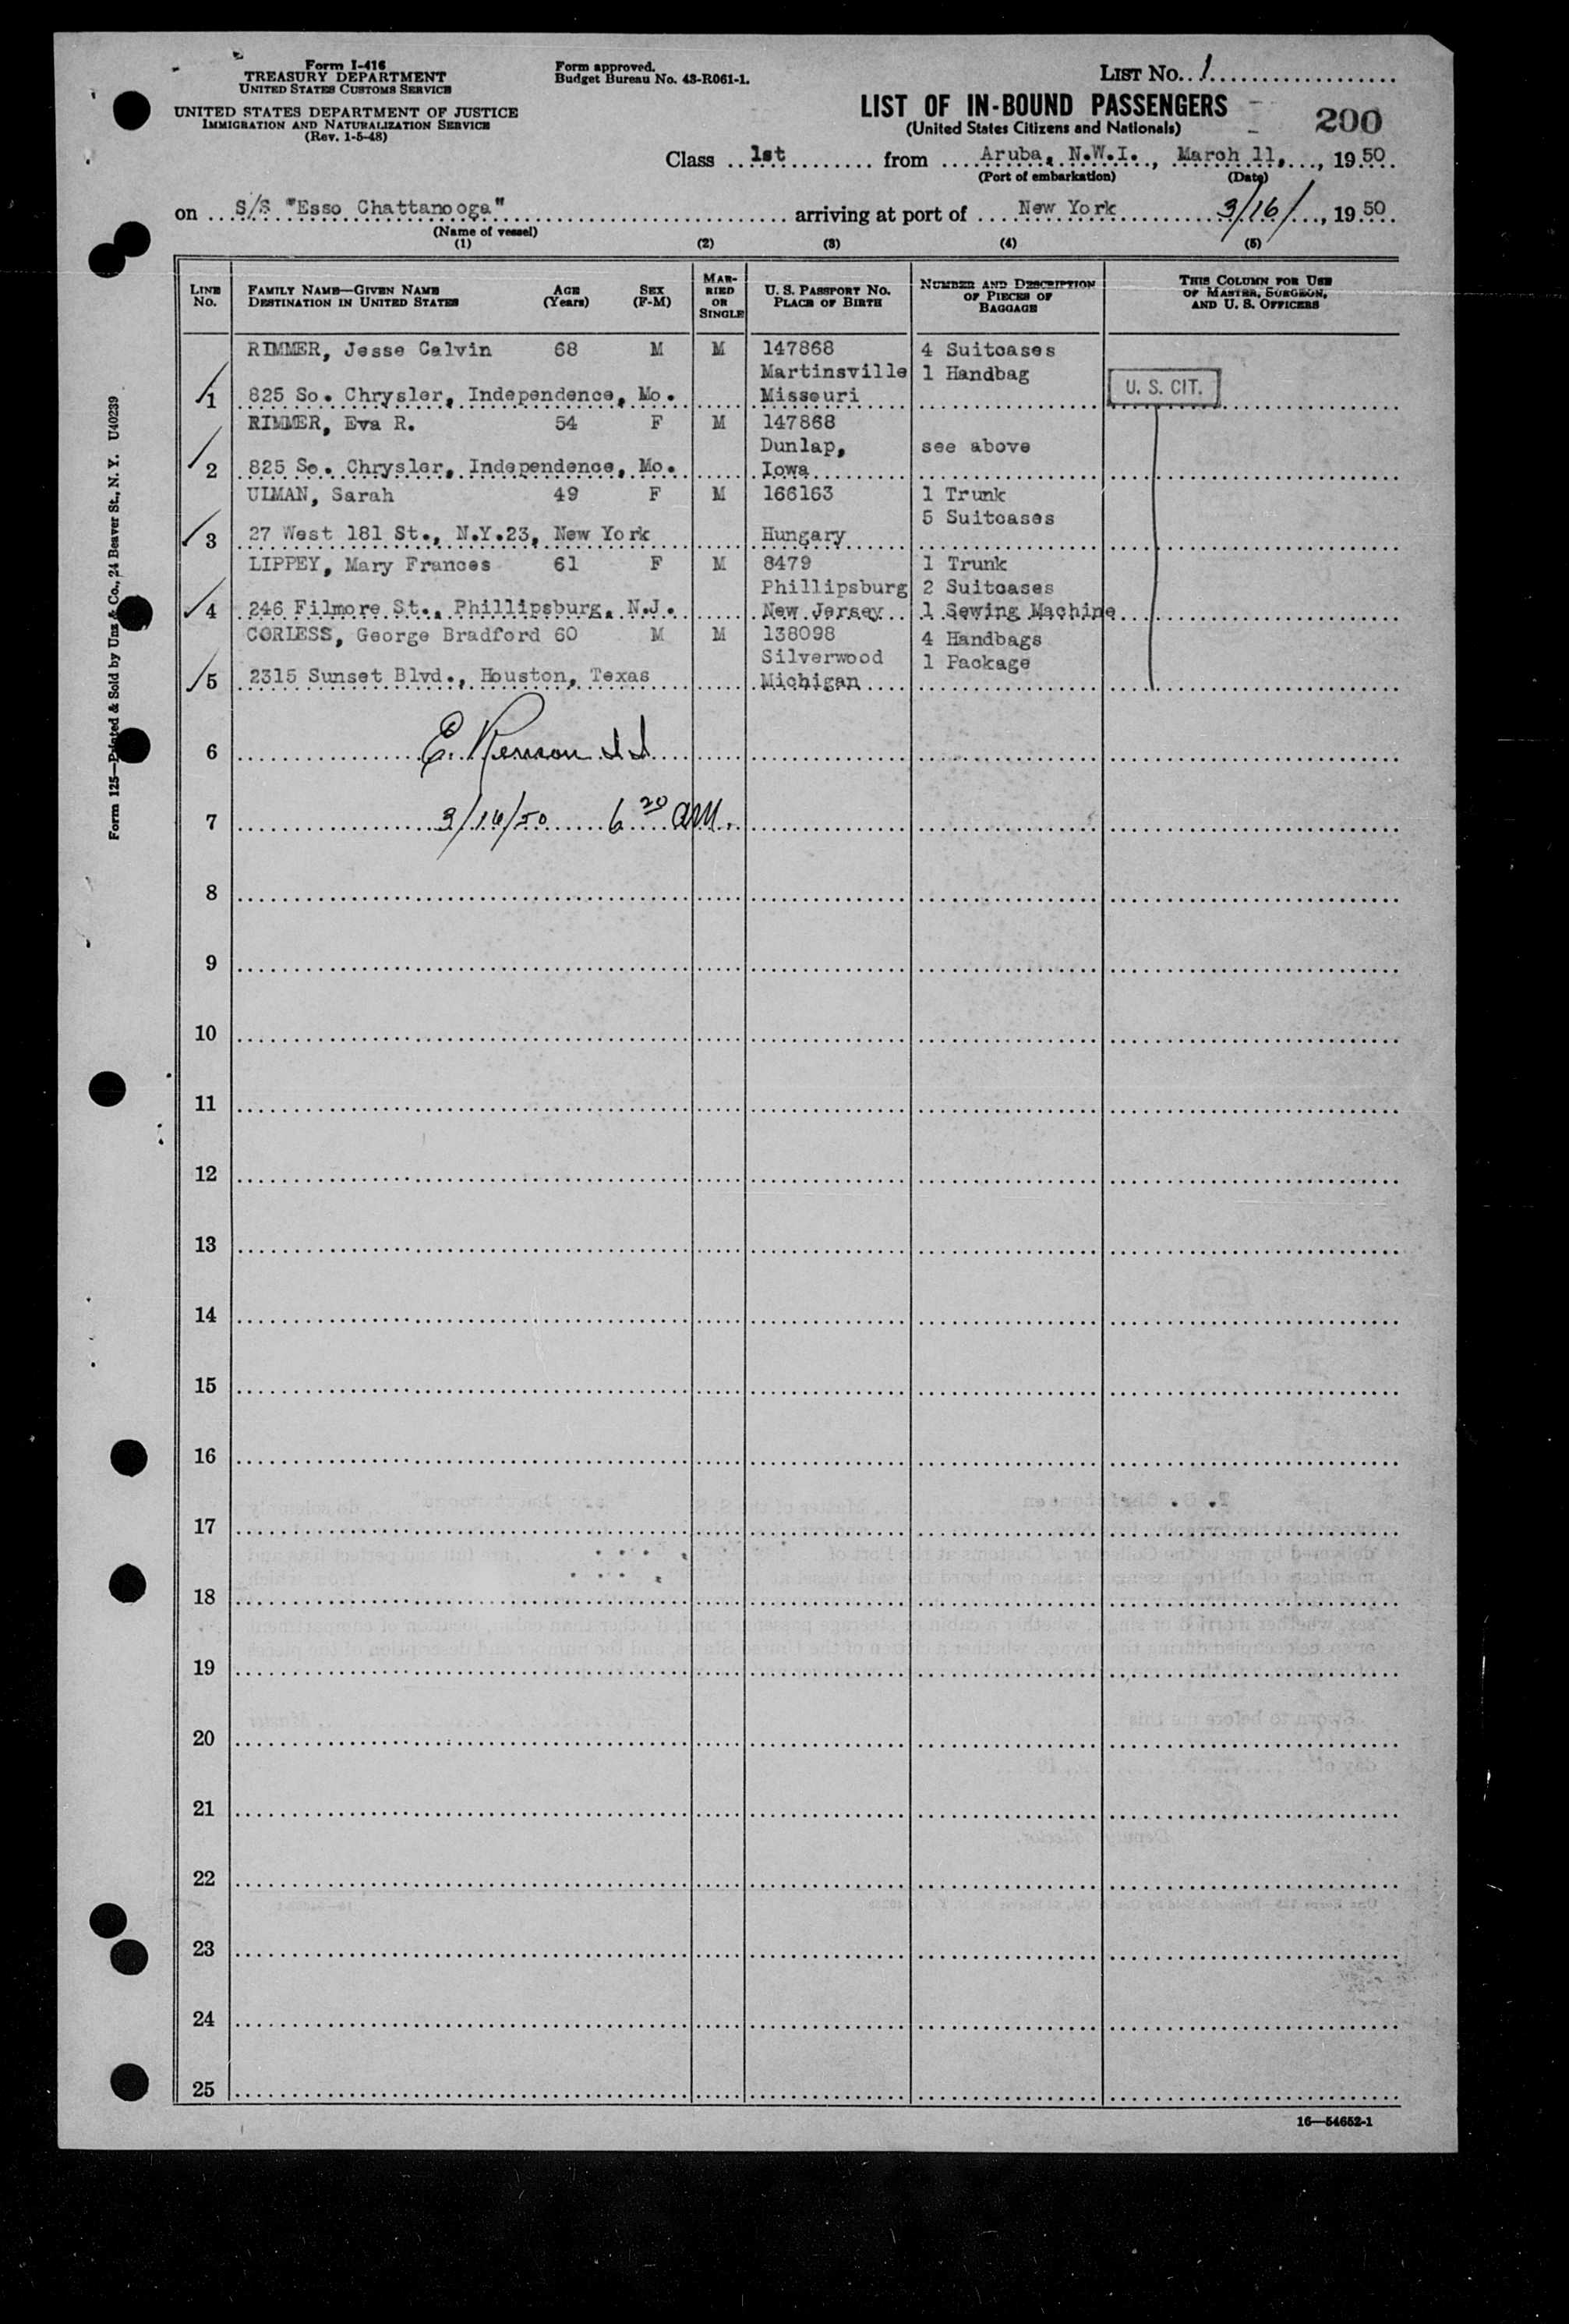 Form I-416
TREASURY DEPARTMENT
UNITED STATES CUSTOMS SERVICE
UNITED STATES DEPARTMENT OF JUSTICE
IMMIGRATION AND NATURALIZATION SERVICE
(Rev. 1-5-48)
Form approved.
Budget Bureau No. 43-R061-1.
LIST No. 1
LIST OF IN-BOUND PASSENGERS
(United States Citizens and Nationals)
200
Class 1st from Aruba, N.W.I., March 11, 1950
(Port of embarkation) (Date)
on S/S "Esso Chattanooga" arriving at port of New York 3/16/, 1950
(Name of vessel)
(1) (2) (3) (4) (5)
LINE No. FAMILY NAME—GIVEN NAME DESTINATION IN UNITED STATES AGE (Years) SEX (F-M) MARRIED OR SINGLE U. S. PASSPORT NO. PLACE OF BIRTH NUMBER AND DESCRIPTION OF PIECES OF BAGGAGE THIS COLUMN FOR USE OF MASTER, SURGEON, AND U. S. OFFICERS
RIMMER, Jesse Calvin 68 M M 147868 4 Suitcases
Martinsville 1 Handbag
1 825 So. Chrysler, Independence, Mo. Missouri U. S. CIT.
RIMMER, Eva R. 54 F M 147868
Dunlap, see above
2 825 So. Chrysler, Independence, Mo. Iowa
ULMAN, Sarah 49 F M 166163 1 Trunk
5 Suitcases
3 27 West 181 St., N.Y.23, New York Hungary
LIPPEY, Mary Frances 61 F M 8479 1 Trunk
Phillipsburg 2 Suitcases
4 246 Filmore St., Phillipsburg, N.J. New Jersey 1 Sewing Machine
CORLESS, George Bradford 60 M M 138098 4 Handbags
Silverwood 1 Package
5 2315 Sunset Blvd., Houston, Texas Michigan
6 E.
7 3/16/50 6 20 AM.
8
9
10
11
12
13
14
15
16
17
18
19
20
21
22
23
24
25
16—54652-1
Form 125—Printed & Sold by Unz & Co., 24 Beaver St., N. Y. U40239